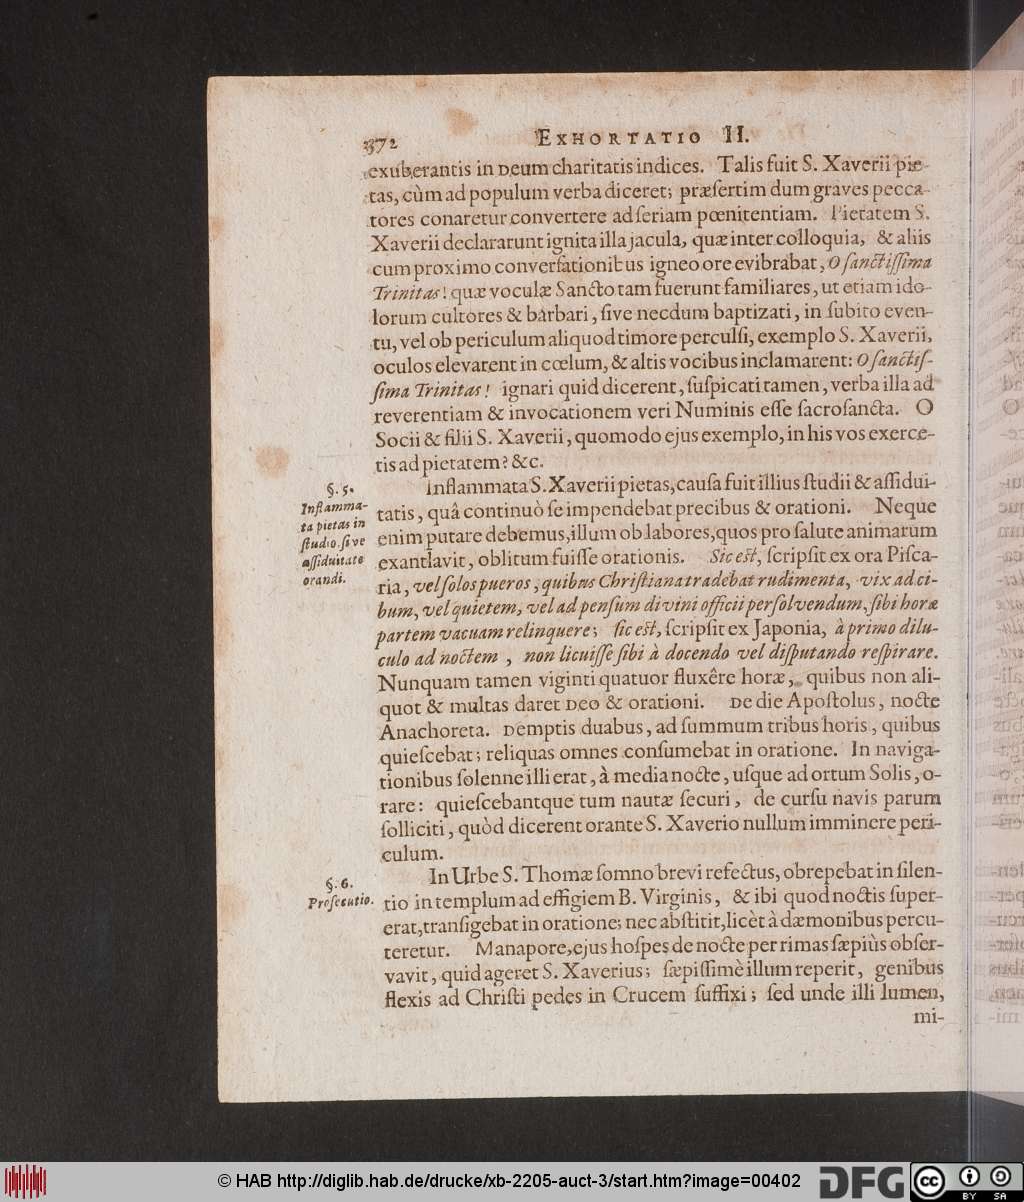 372 EXHORTATIO II.
exuberantis in Deum charitatis indices. Talis fuit S. Xaverii pie-
tas, cùm ad populum verba diceret; præſertim dum graves pecca-
tores conaretur convertere ad ſeriam pœnitentiam. Pietatem S.
Xaverii declararunt ignita illa jacula, quæ inter colloquia, & aliis
cum proximo converſationibus igneo ore evibrabat, O ſanctiſſima
Trinitas! quæ voculæ Sancto tam fuerunt familiares, ut etiam ido-
lorum cultores & barbari, ſive necdum baptizati, in ſubito even-
tu, vel ob periculum aliquod timore perculſi, exemplo S. Xaverii,
oculos elevarent in cœlum, & altis vocibus inclamarent: O ſanctiſ-
ſima Trinitas! ignari quid dicerent, ſuſpicati tamen, verba illa ad
reverentiam & invocationem veri Numinis eſſe ſacroſancta. O
Socii & filii S. Xaverii, quomodo ejus exemplo, in his vos exerce-
tis ad pietatem? &c.
§. 5.
Inflamma-
ta pietas in
ſtudio ſive
aſſiduitate
orandi.
Inflammata S. Xaverii pietas, cauſa fuit illius ſtudii & aſſidui-
tatis, quâ continuò ſe impendebat precibus & orationi. Neque
enim putare debemus, illum ob labores, quos pro ſalute animarum
exantlavit, oblitum fuiſſe orationis. Sic eſt, ſcripſit ex ora Piſca-
ria, vel ſolos pueros, quibus Chriſtiana tradebat rudimenta, vix ad ci-
bum, vel quietem, vel ad penſum divini officii perſolvendum, ſibi horæ
partem vacuam relinquere; ſic eſt, ſcripſit ex Japonia, à primo dilu-
culo ad noctem, non licuiſſe ſibi à docendo vel diſputando reſpirare.
Nunquam tamen viginti quatuor fluxêre horæ, quibus non ali-
quot & multas daret Deo & orationi. De die Apoſtolus, nocte
Anachoreta. Demptis duabus, ad ſummum tribus horis, quibus
quieſcebat; reliquas omnes conſumebat in oratione. In naviga-
tionibus ſolenne illi erat, à media nocte, uſque ad ortum Solis, o-
rare: quieſcebantque tum nautæ ſecuri, de curſu navis parum
ſolliciti, quòd dicerent orante S. Xaverio nullum imminere peri-
culum.
§. 6.
Proſecutio.
In Urbe S. Thomæ ſomno brevi refectus, obrepebat in ſilen-
tio in templum ad effigiem B. Virginis, & ibi quod noctis ſuper-
erat, tranſigebat in oratione; nec abſtitit, licèt à dæmonibus percu-
teretur. Manapore, ejus hoſpes de nocte per rimas ſæpiùs obſer-
vavit, quid ageret S. Xaverius; ſæpiſſimè illum reperit, genibus
flexis ad Chriſti pedes in Crucem ſuffixi; ſed unde illi lumen,
mi-
© HAB http://diglib.hab.de/drucke/xb-2205-auct-3/start.htm?image=00402
DFG
cc BY SA